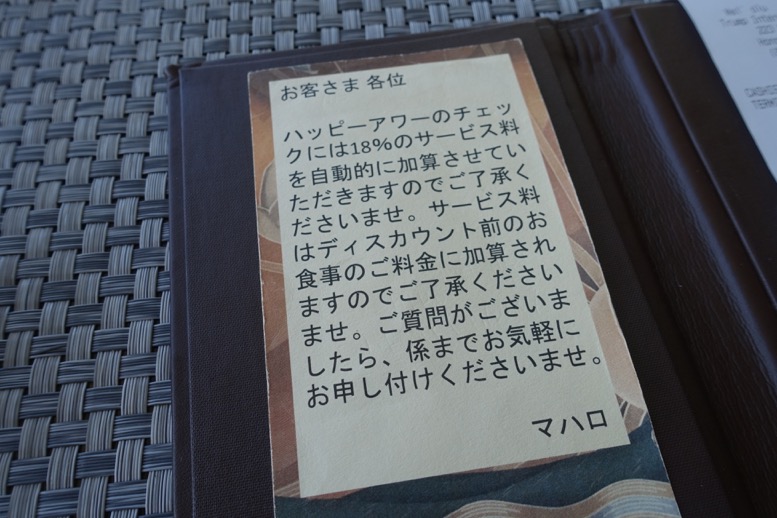 お客さま 各位
ハッピーアワーのチェッ
クには18%のサービス料
を自動的に加算させてい
ただきますのでご了承く
ださいませ。サービス料
はディスカウント前のお
食事のご料金に加算され
ますのでご了承ください
ませ。ご質問がございま
したら、係までお気軽に
お申し付けくださいませ。
マハロ
Trump Inter